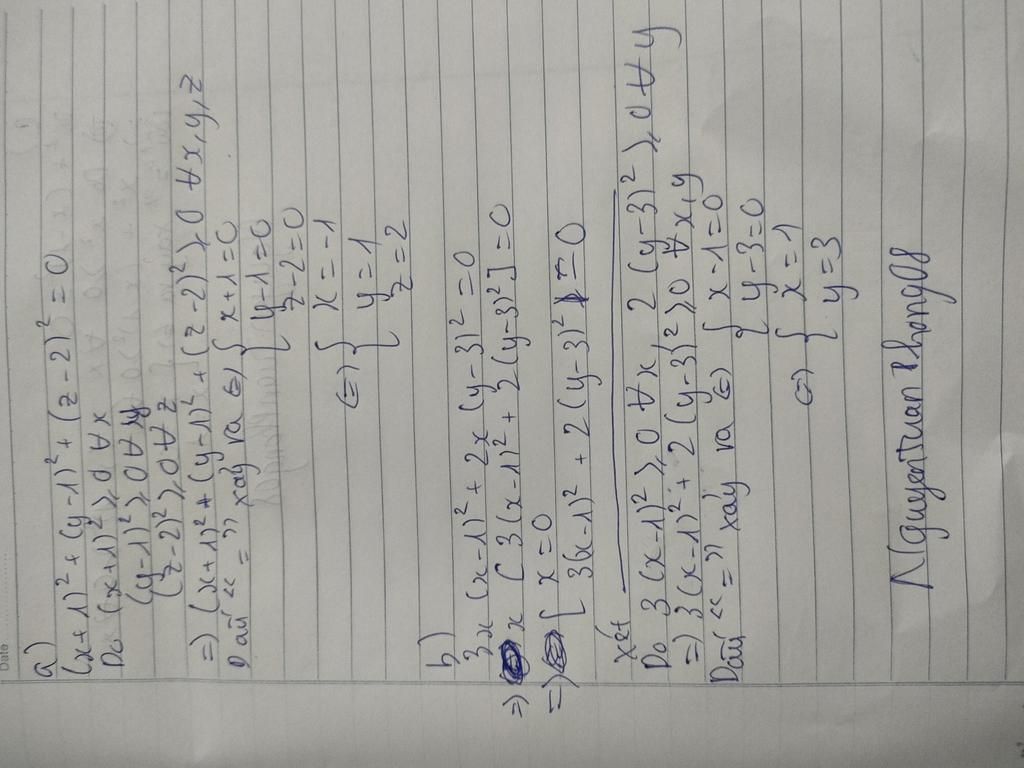 Date
a)
(x+1)² + (y-1)² + (z-2)² = 0
Do (x+1)² ≥ 0 ∀ x
(y-1)² ≥ 0 ∀ y
(z-2)² ≥ 0 ∀ z
=) (x+1)² + (y-1)² + (z-2)² ≥ 0 ∀ x, y, z
Dấu "=" xảy ra (=) { x+1=0
y-1=0
z-2=0
(=) { x=-1
y=1
z=2
b)
3x (x-1)² + 2x (y-3)² = 0
=) x [3(x-1)² + 2(y-3)²] = 0
=) [ x=0
3(x-1)² + 2(y-3)² = 0
xét
Do 3(x-1)² ≥ 0 ∀ x, 2(y-3)² ≥ 0 ∀ y
=) 3(x-1)² + 2(y-3)² ≥ 0 ∀ x, y
Dấu "=" xảy ra (=) { x-1=0
y-3=0
(=) { x=1
y=3
NguyenTuanPhong08